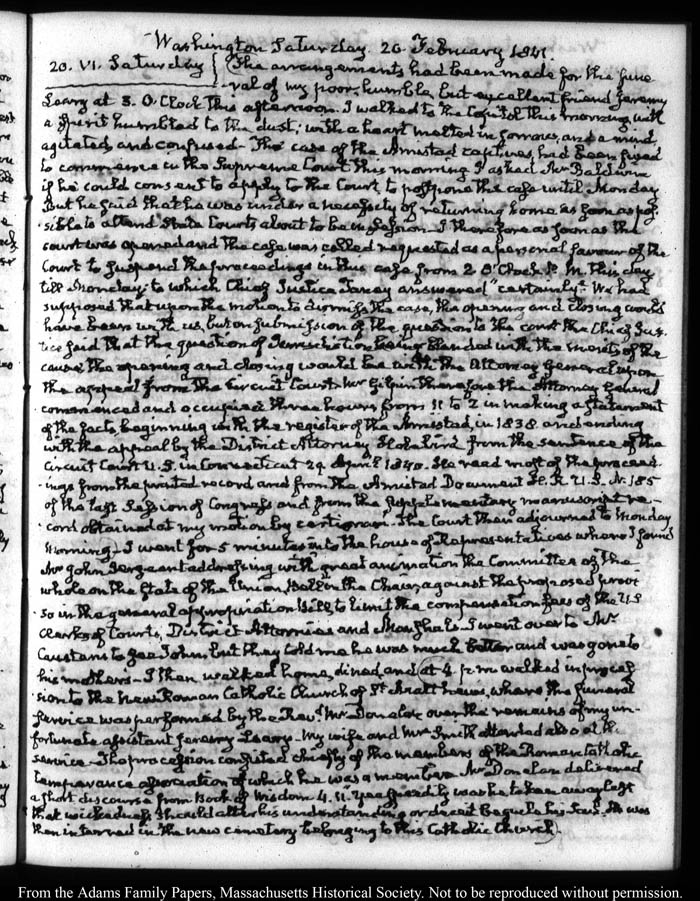 Washington Saturday. 20 February 1841.
20. VI. Saturday } The arrangements had been made for the fune-
ral of my poor, humble, but excellent friend Jeremy
Leary at 3. O'Clock this afternoon. I walked to the Capitol this morning with
a Spirit humbled to the dust; with a heart melted in sorrow, and a mind
agitated and confused- The case of the Amistad captives, had been fixed
to commence in the Supreme Court this morning I asked Mr Baldwin
if he could consent to apply to the Court to postpone the case until Monday
But he said that he was under a necessity of returning home as soon as pos-
sible to attend State Courts about to be in Session- I therefore as soon as the
court was opened and the case was called requested as a personal favour of the
Court to suspend the proceedings in this case from 2 O'Clock P. M. this day
till Monday; to which Chief Justice Taney answered "certainly". We had
supposed that upon the motion to dismiss the case, the opening and closing would
have been with us, but on submission of the question to the court the Chief Jus-
tice said that the question of Jurisdiction being blended with the merits of the
cause the opening and closing would be with the Attorney General upon
the appeal from the Circuit Court- Mr Gilpin therefore the Attorney General
commenced and occupied three hours from 11 to 2 in making a statement
of the facts beginning with the register of the Amistad, in 1838 and ending
with the appeal by the District Attorney Holabird from the sentence of the
Circuit Court U. S. in Connecticut 29 April 1840. He read most of the proceed-
ings from the printed record and from the Amistad Document H. R. U. S. N. 185
of the last Session of Congress and from the supplementary manuscript re-
cord obtained at my motion by certiorari. The Court then adjourned to Monday
morning- I went for 5 minutes into the house of Representatives where I found
Mr John Sergeant addressing with great animation the Committee of the
whole on the State of the Union, Bell in the Chair, against the proposed provi-
so in the general appropriation bill to limit the compensation fees of the U.S
Clerks of Courts, District Attornies and Marshals. I went over to Mr
Caustens to see John, but they told me he was much better and was gone to
his mothers- I then walked home, dined, and at 4. p. m. walked in proces-
sion to the new Roman Catholic Church of St. Matthews, where the funeral
service was performed by the Revd Mr Donelan over the remains of my un-
fortunate assistant Jeremy Leary- My wife and Mrs Smith attended also at the
service- The procession consisted chiefly of the members of the Roman Catholic
temperance association of which he was a member. Mr Donelan delivered
a short discourse from Book of Wisdom 4. 11. Yea speedily was he taken away lest
that wickedness should alter his understanding or deceit beguile his Soul. He was
then interred in the new cemetery belonging to this Catholic Church.
From the Adams Family Papers, Massachusetts Historical Society. Not to be reproduced without permission.